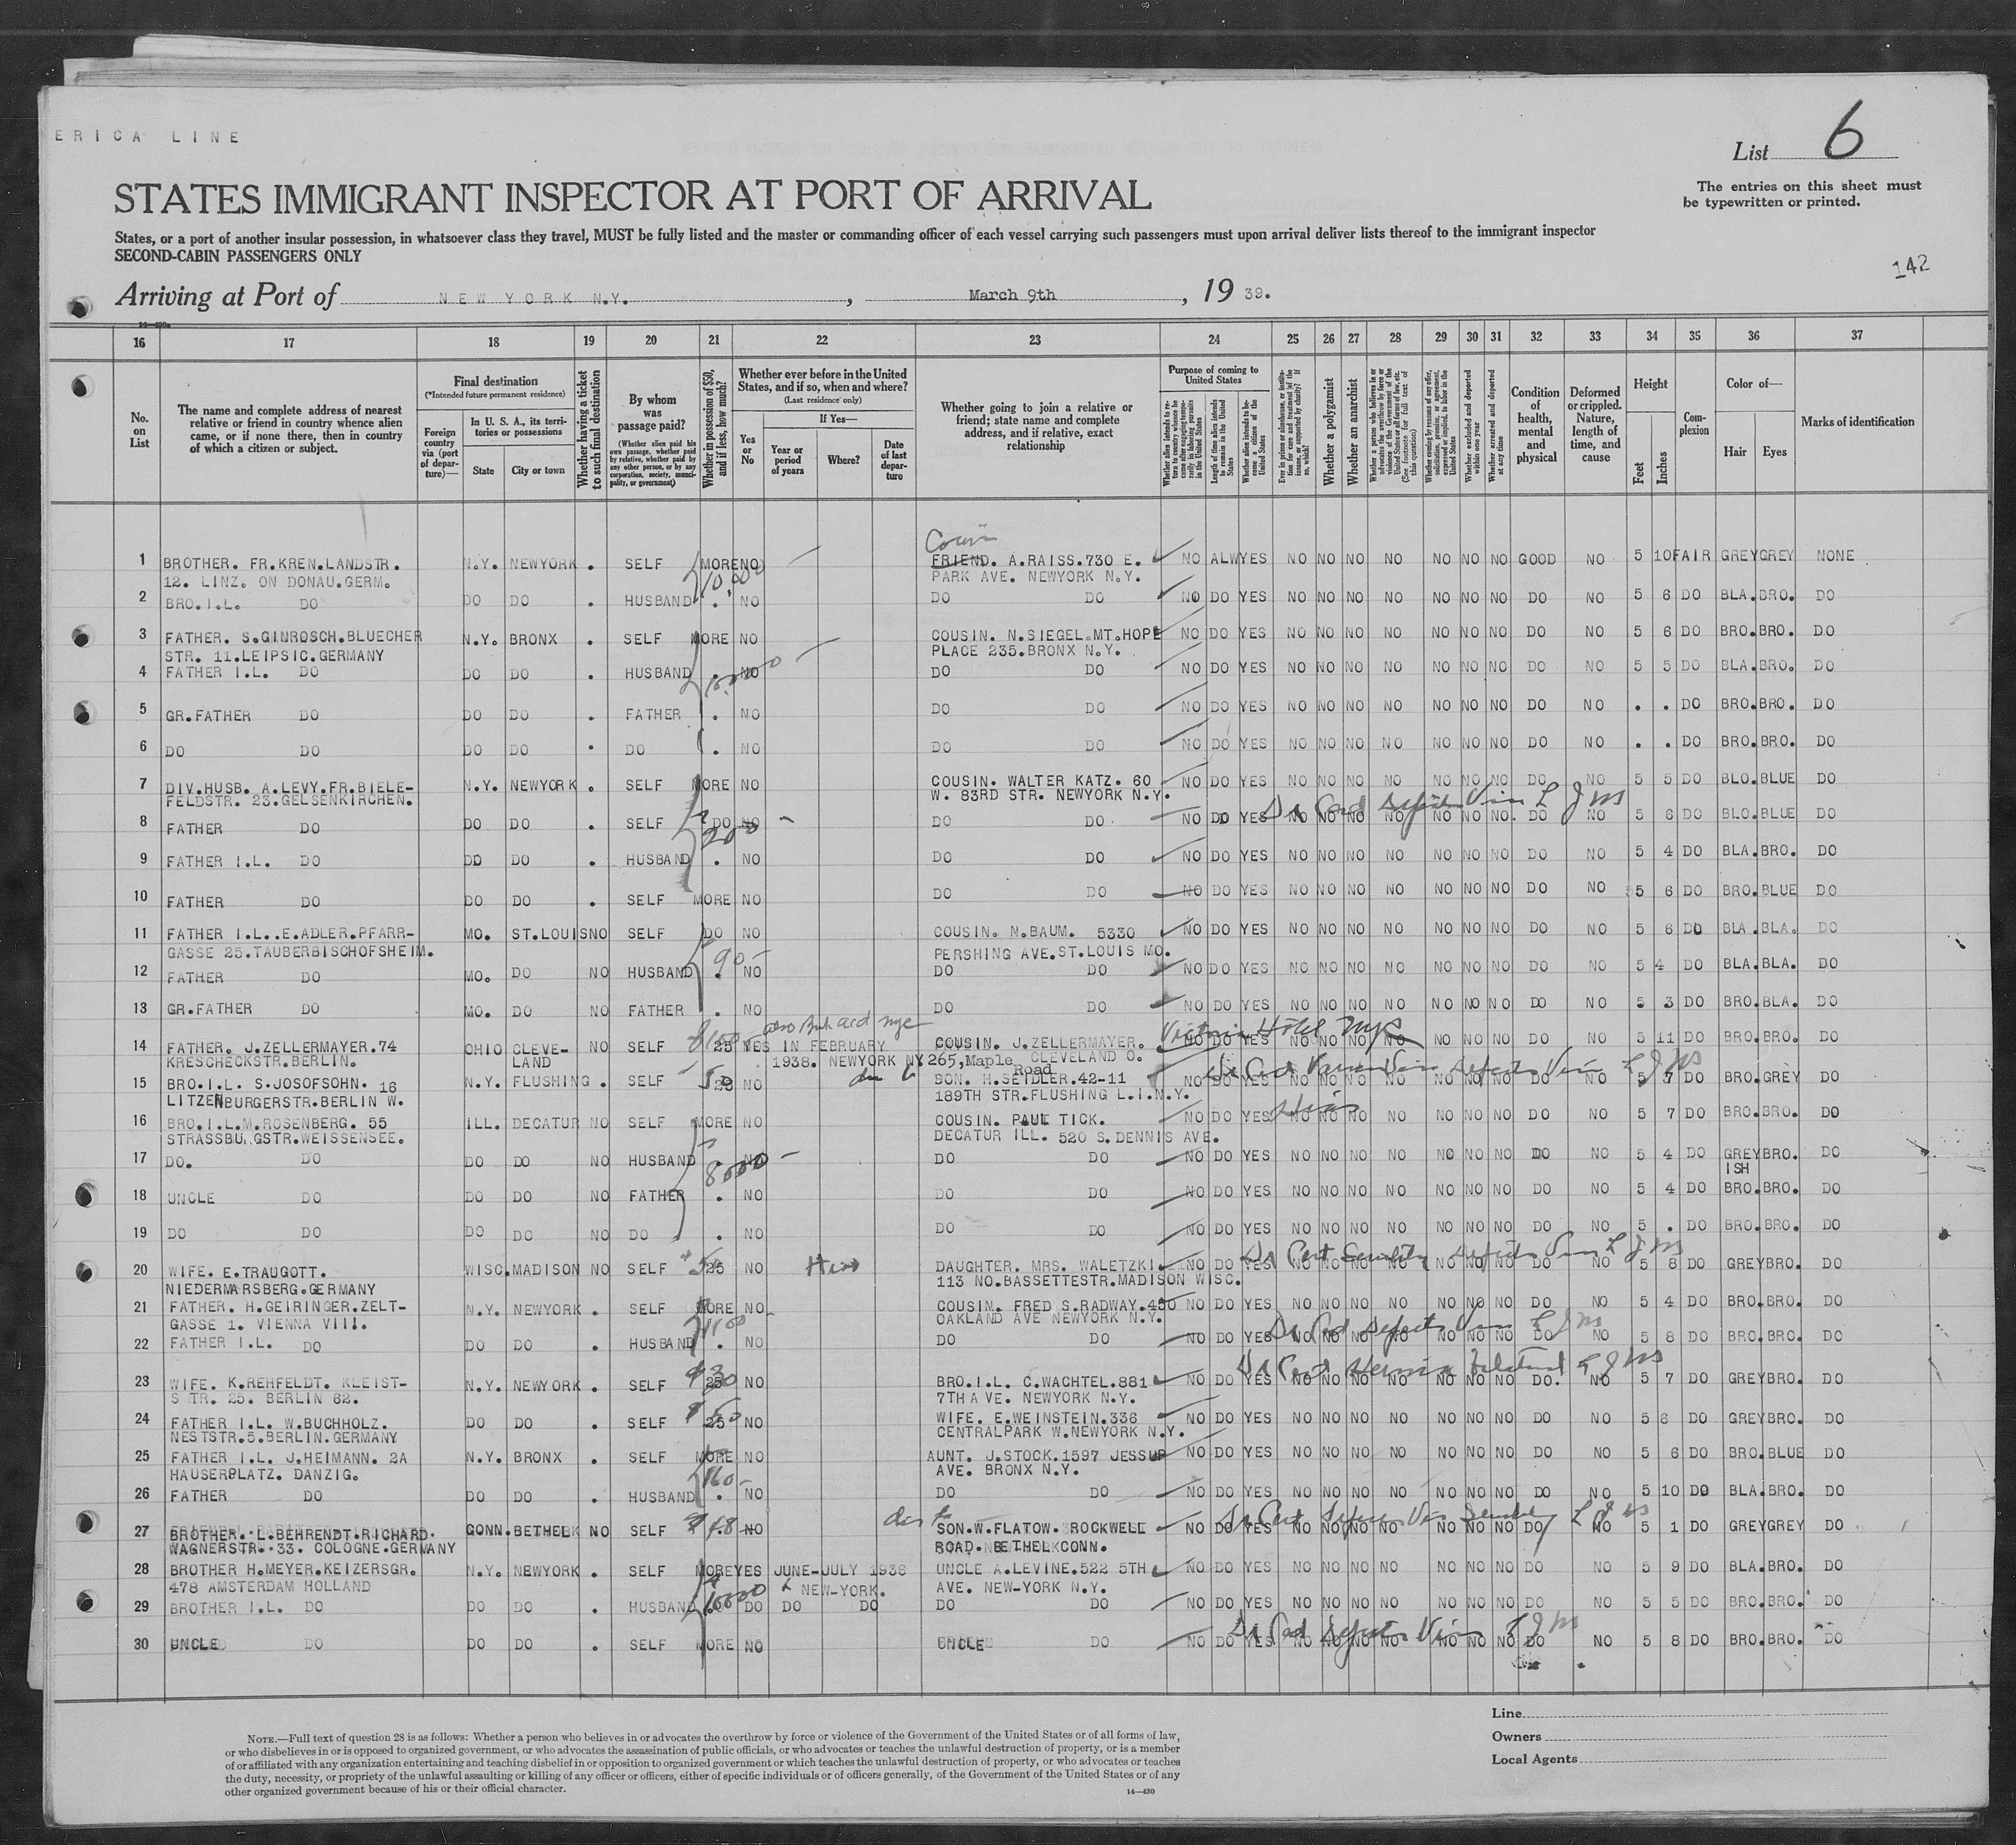 ERICA LINE
List 6
STATES IMMIGRANT INSPECTOR AT PORT OF ARRIVAL
The entries on this sheet must
be typewritten or printed.
States, or a port of another insular possession, in whatsoever class they travel, MUST be fully listed and the master or commanding officer of each vessel carrying such passengers must upon arrival deliver lists thereof to the immigrant inspector
SECOND-CABIN PASSENGERS ONLY
142
Arriving at Port of NEW YORK N.Y., March 9th, 19 39.
16 17 18 19 20 21 22 23 24 25 26 27 28 29 30 31 32 33 34 35 36 37
No. on List
The name and complete address of nearest relative or friend in country whence alien came, or if none there, then in country of which a citizen or subject.
Final destination
(*Intended future permanent residence)
Foreign country via (port of departure)—
In U. S. A., its territories or possessions
State City or town
Whether having a ticket to such final destination
By whom was passage paid?
(Whether alien paid his own passage, whether paid by relative, whether paid by any other person, or by any corporation, society, municipality, or government)
Whether in possession of $50, and if less, how much?
Whether ever before in the United States, and if so, when and where?
(Last residence only)
Yes or No
If Yes—
Year or period of years
Where?
Date of last departure
Whether going to join a relative or friend; state name and complete address, and if relative, exact relationship
Purpose of coming to United States
Length of time alien intends to remain in the United States
Whether alien intends to become a citizen of the United States
Whether a polygamist
Whether an anarchist
Whether excluded and deported within one year
Whether arrested and deported at any time
Condition of health, mental and physical
Deformed or crippled. Nature, length of time, and cause
Height
Feet Inches
Complexion
Color of—
Hair Eyes
Marks of identification
1 BROTHER. FR.KREN.LANDSTR. N.Y. NEWYORK . SELF MORE NO FRIEND. A.RAISS.730 E. NO ALW YES NO NO NO NO NO NO NO GOOD NO 5 10 FAIR GREY GREY NONE
12. LINZ. ON DONAU.GERM. 10,000 PARK AVE. NEWYORK N.Y.
2 BRO.I.L. DO DO DO . HUSBAND . NO DO DO NO DO YES NO NO NO NO NO NO NO DO NO 5 6 DO BLA. BRO. DO
3 FATHER. S.GINROSCH.BLUECHER N.Y. BRONX . SELF MORE NO COUSIN. N.SIEGEL.MT.HOPE NO DO YES NO NO NO NO NO NO NO DO NO 5 6 DO BRO. BRO. DO
STR. 11.LEIPSIC.GERMANY PLACE 235.BRONX N.Y.
4 FATHER I.L. DO DO DO . HUSBAND . NO DO DO NO DO YES NO NO NO NO NO NO NO DO NO 5 5 DO BLA. BRO. DO
5 GR.FATHER DO DO DO . FATHER . NO DO DO NO DO YES NO NO NO NO NO NO NO DO NO . . DO BRO. BRO. DO
6 DO DO DO DO . DO . NO DO DO NO DO YES NO NO NO NO NO NO NO DO NO . . DO BRO. BRO. DO
7 DIV.HUSB. A.LEVY.FR.BIELE- N.Y. NEWYORK . SELF MORE NO COUSIN. WALTER KATZ. 60 NO DO YES NO NO NO NO NO NO NO DO NO 5 5 DO BLO. BLUE DO
FELDSTR. 23.GELSENKIRCHEN. W. 83RD STR. NEWYORK N.Y.
8 FATHER DO DO DO . SELF DO NO DO DO NO DO YES NO NO NO NO NO NO NO. DO NO 5 6 DO BLO. BLUE DO
9 FATHER I.L. DO DO DO . HUSBAND . NO DO DO NO DO YES NO NO NO NO NO NO NO DO NO 5 4 DO BLA. BRO. DO
10 FATHER DO DO DO . SELF MORE NO DO DO NO DO YES NO NO NO NO NO NO NO DO NO 5 6 DO BRO. BLUE DO
11 FATHER I.L..E.ADLER.PFARR- MO. ST.LOUIS NO SELF DO NO COUSIN. N.BAUM. 5330 NO DO YES NO NO NO NO NO NO NO DO NO 5 6 DO BLA. BLA. DO
GASSE 25.TAUBERBISCHOFSHEIM. 90- PERSHING AVE.ST.LOUIS MO.
12 FATHER DO MO. DO NO HUSBAND . NO DO DO NO DO YES NO NO NO NO NO NO NO DO NO 5 4 DO BLA. BLA. DO
13 GR.FATHER DO MO. DO NO FATHER . NO DO DO NO DO YES NO NO NO NO NO NO NO DO NO 5 3 DO BRO. BLA. DO
Victoria Hotel NYC
14 FATHER. J.ZELLERMAYER.74 OHIO CLEVE- NO SELF 25 YES IN FEBRUARY COUSIN. J.ZELLERMAYER. NO DO YES NO NO NO NO NO NO NO DO NO 5 11 DO BRO. BRO. DO
KRESCHECKSTR.BERLIN. LAND 1938. NEWYORK NY 265,Maple Road CLEVELAND O.
15 BRO.I.L. S.JOSOFSOHN. 16 N.Y. FLUSHING . SELF 25 NO SON. H.SEIDLER.42-11 NO DO YES NO NO NO NO NO NO NO DO NO 5 7 DO BRO. GREY DO
LITZENBURGERSTR.BERLIN W. 189TH STR.FLUSHING L.I.N.Y.
16 BRO.I.L.M.ROSENBERG. 55 ILL. DECATUR NO SELF MORE NO COUSIN. PAUL TICK. NO DO YES NO NO NO NO NO NO NO DO NO 5 7 DO BRO. BRO. DO
STRASSBU.GSTR.WEISSENSEE. DECATUR ILL. 520 S.DENNIS AVE.
17 DO. DO DO DO NO HUSBAND NO DO DO NO DO YES NO NO NO NO NO NO NO DO NO 5 4 DO GREYISH BRO. DO
18 UNCLE DO DO DO NO FATHER . NO DO DO NO DO YES NO NO NO NO NO NO NO DO NO 5 4 DO BRO. BRO. DO
19 DO DO DO DO NO DO . NO DO DO NO DO YES NO NO NO NO NO NO NO DO NO 5 . DO BRO. BRO. DO
20 WIFE. E.TRAUGOTT. WISC. MADISON NO SELF 25 NO DAUGHTER. MRS. WALETZKI. NO DO YES NO NO NO NO NO NO NO DO NO 5 8 DO GREY BRO. DO
NIEDERMARSBERG.GERMANY 113 NO.BASSETTESTR.MADISON WISC.
21 FATHER. H.GEIRINGER.ZELT- N.Y. NEWYORK . SELF MORE NO COUSIN. FRED S.RADWAY.450 NO DO YES NO NO NO NO NO NO NO DO NO 5 4 DO BRO. BRO. DO
GASSE 1. VIENNA VIII. OAKLAND AVE NEWYORK N.Y.
22 FATHER I.L. DO DO DO . HUSBAND . NO DO DO NO DO YES NO NO NO NO NO NO NO DO NO 5 8 DO BRO. BRO. DO
23 WIFE. K.REHFELDT. KLEIST- N.Y. NEWYORK . SELF 25 NO BRO.I.L. C.WACHTEL.881 NO DO YES NO NO NO NO NO NO NO DO. NO 5 7 DO GREY BRO. DO
STR. 25. BERLIN 62. 7TH AVE. NEWYORK N.Y.
24 FATHER I.L. W.BUCHHOLZ. DO DO . SELF 25 NO WIFE. E.WEINSTEIN.336 NO DO YES NO NO NO NO NO NO NO DO NO 5 6 DO GREY BRO. DO
NESTSTR.5.BERLIN.GERMANY CENTRALPARK W.NEWYORK N.Y.
25 FATHER I.L. J.HEIMANN. 2A N.Y. BRONX . SELF MORE NO AUNT. J.STOCK.1597 JESSUP NO DO YES NO NO NO NO NO NO NO DO NO 5 6 DO BRO. BLUE DO
HAUSERPLATZ. DANZIG. AVE. BRONX N.Y.
26 FATHER DO DO DO . HUSBAND . NO DO DO NO DO YES NO NO NO NO NO NO NO DO NO 5 10 DO BLA. BRO. DO
27 BROTHER. L.BEHRENDT.RICHARD. CONN. BETHEL NO SELF 48 NO SON.W.FLATOW. ROCKWELL NO DO YES NO NO NO NO NO NO NO DO NO 5 1 DO GREY GREY DO
WAGNERSTR. 33. COLOGNE.GERMANY ROAD. BETHEL CONN.
28 BROTHER H.MEYER.KEIZERSGR. N.Y. NEWYORK . SELF MORE YES JUNE-JULY 1936 UNCLE A.LEVINE.522 5TH NO DO YES NO NO NO NO NO NO NO DO NO 5 9 DO BLA. BRO. DO
478 AMSTERDAM HOLLAND NEW-YORK. AVE. NEW-YORK N.Y.
29 BROTHER I.L. DO DO DO . HUSBAND DO DO DO DO DO NO DO YES NO NO NO NO NO NO NO DO NO 5 5 DO BRO. BRO. DO
30 UNCLE DO DO DO . SELF MORE NO UNCLE DO NO DO YES NO NO NO NO NO NO NO DO NO 5 8 DO BRO. BRO. DO
NOTE.—Full text of question 28 is as follows: Whether a person who believes in or advocates the overthrow by force or violence of the Government of the United States or of all forms of law,
or who disbelieves in or is opposed to organized government, or who advocates the assassination of public officials, or who advocates or teaches the unlawful destruction of property, or is a member
of or affiliated with any organization entertaining and teaching disbelief in or opposition to organized government or which teaches the unlawful destruction of property, or who advocates or teaches
the duty, necessity, or propriety of the unlawful assaulting or killing of any officer or officers, either of specific individuals or of officers generally, of the Government of the United States or of any
other organized government because of his or their official character.
14—430
Line
Owners
Local Agents